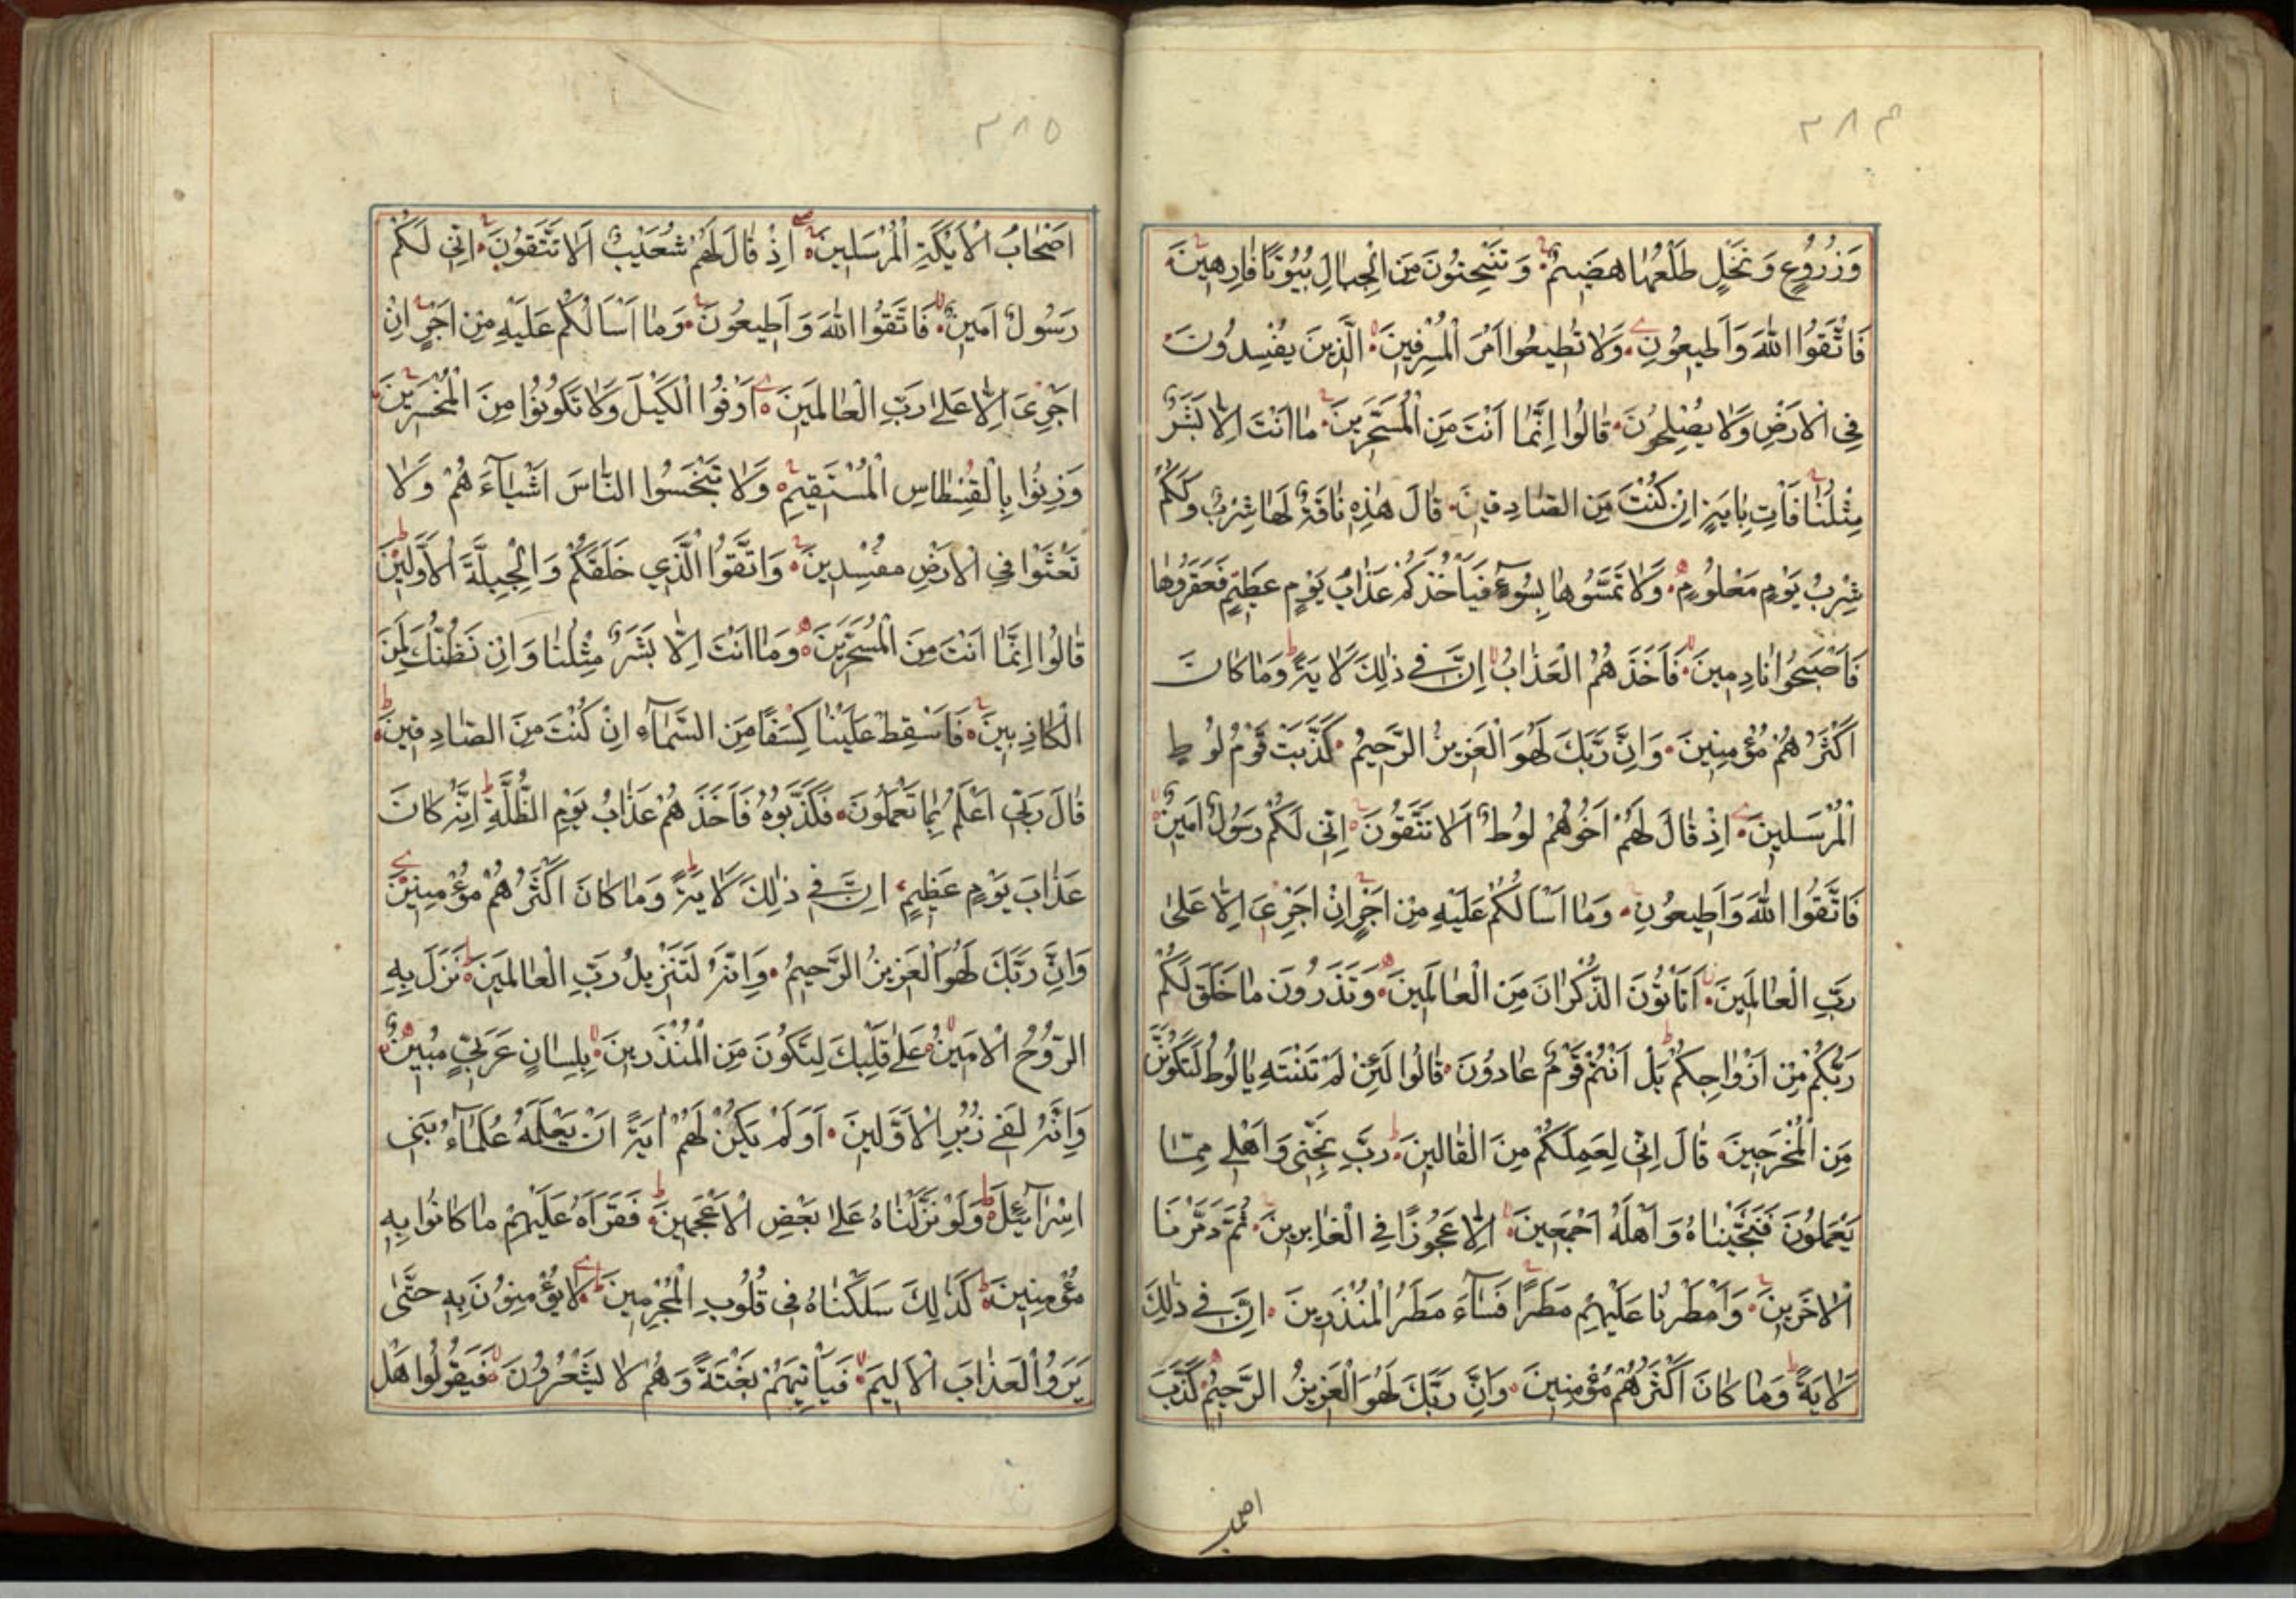 ٣٨٤
وَزُرُوعٍ وَنَخْلٍ طَلْعُهَا هَضِيمٌ وَتَنْحِتُونَ مِنَ الْجِبَالِ بُيُوتًا فَارِهِينَ
فَاتَّقُوا اللّٰهَ وَاَطِيعُونِ وَلَا تُطِيعُوا اَمْرَ الْمُسْرِفِينَ الَّذِينَ يُفْسِدُونَ
فِي الْاَرْضِ وَلَا يُصْلِحُونَ قَالُوا اِنَّمَا اَنْتَ مِنَ الْمُسَحَّرِينَ مَا اَنْتَ اِلَّا بَشَرٌ
مِثْلُنَا فَاْتِ بِاٰيَةٍ اِنْ كُنْتَ مِنَ الصَّادِقِينَ قَالَ هٰذِهِ نَاقَةٌ لَهَا شِرْبٌ وَلَكُمْ
شِرْبُ يَوْمٍ مَعْلُومٍ وَلَا تَمَسُّوهَا بِسُوءٍ فَيَاْخُذَكُمْ عَذَابُ يَوْمٍ عَظِيمٍ فَعَقَرُوهَا
فَاَصْبَحُوا نَادِمِينَ فَاَخَذَهُمُ الْعَذَابُ اِنَّ فِي ذٰلِكَ لَاٰيَةً وَمَا كَانَ
اَكْثَرُهُمْ مُؤْمِنِينَ وَاِنَّ رَبَّكَ لَهُوَ الْعَزِيزُ الرَّحِيمُ كَذَّبَتْ قَوْمُ لُوطٍ
الْمُرْسَلِينَ اِذْ قَالَ لَهُمْ اَخُوهُمْ لُوطٌ اَلَا تَتَّقُونَ اِنِّي لَكُمْ رَسُولٌ اَمِينٌ
فَاتَّقُوا اللّٰهَ وَاَطِيعُونِ وَمَا اَسْاَلُكُمْ عَلَيْهِ مِنْ اَجْرٍ اِنْ اَجْرِيَ اِلَّا عَلٰى
رَبِّ الْعَالَمِينَ اَتَاْتُونَ الذُّكْرَانَ مِنَ الْعَالَمِينَ وَتَذَرُونَ مَا خَلَقَ لَكُمْ
رَبُّكُمْ مِنْ اَزْوَاجِكُمْ بَلْ اَنْتُمْ قَوْمٌ عَادُونَ قَالُوا لَئِنْ لَمْ تَنْتَهِ يَا لُوطُ لَتَكُونَنَّ
مِنَ الْمُخْرَجِينَ قَالَ اِنِّي لِعَمَلِكُمْ مِنَ الْقَالِينَ رَبِّ نَجِّنِي وَاَهْلِي مِمَّا
يَعْمَلُونَ فَنَجَّيْنَاهُ وَاَهْلَهُ اَجْمَعِينَ اِلَّا عَجُوزًا فِي الْغَابِرِينَ ثُمَّ دَمَّرْنَا
الْاٰخَرِينَ وَاَمْطَرْنَا عَلَيْهِمْ مَطَرًا فَسَاۤءَ مَطَرُ الْمُنْذَرِينَ اِنَّ فِي ذٰلِكَ
لَاٰيَةً وَمَا كَانَ اَكْثَرُهُمْ مُؤْمِنِينَ وَاِنَّ رَبَّكَ لَهُوَ الْعَزِيزُ الرَّحِيمُ كَذَّبَ
اصحاب
٣٨٥
اَصْحَابُ الْاَيْكَةِ الْمُرْسَلِينَ اِذْ قَالَ لَهُمْ شُعَيْبٌ اَلَا تَتَّقُونَ اِنِّي لَكُمْ
رَسُولٌ اَمِينٌ فَاتَّقُوا اللّٰهَ وَاَطِيعُونِ وَمَا اَسْاَلُكُمْ عَلَيْهِ مِنْ اَجْرٍ اِنْ
اَجْرِيَ اِلَّا عَلٰى رَبِّ الْعَالَمِينَ اَوْفُوا الْكَيْلَ وَلَا تَكُونُوا مِنَ الْمُخْسِرِينَ
وَزِنُوا بِالْقِسْطَاسِ الْمُسْتَقِيمِ وَلَا تَبْخَسُوا النَّاسَ اَشْيَاۤءَهُمْ وَلَا
تَعْثَوْا فِي الْاَرْضِ مُفْسِدِينَ وَاتَّقُوا الَّذِي خَلَقَكُمْ وَالْجِبِلَّةَ الْاَوَّلِينَ
قَالُوا اِنَّمَا اَنْتَ مِنَ الْمُسَحَّرِينَ وَمَا اَنْتَ اِلَّا بَشَرٌ مِثْلُنَا وَاِنْ نَظُنُّكَ لَمِنَ
الْكَاذِبِينَ فَاَسْقِطْ عَلَيْنَا كِسَفًا مِنَ السَّمَاۤءِ اِنْ كُنْتَ مِنَ الصَّادِقِينَ
قَالَ رَبِّي اَعْلَمُ بِمَا تَعْمَلُونَ فَكَذَّبُوهُ فَاَخَذَهُمْ عَذَابُ يَوْمِ الظُّلَّةِ اِنَّهُ كَانَ
عَذَابَ يَوْمٍ عَظِيمٍ اِنَّ فِي ذٰلِكَ لَاٰيَةً وَمَا كَانَ اَكْثَرُهُمْ مُؤْمِنِينَ
وَاِنَّ رَبَّكَ لَهُوَ الْعَزِيزُ الرَّحِيمُ وَاِنَّهُ لَتَنْزِيلُ رَبِّ الْعَالَمِينَ نَزَلَ بِهِ
الرُّوحُ الْاَمِينُ عَلٰى قَلْبِكَ لِتَكُونَ مِنَ الْمُنْذِرِينَ بِلِسَانٍ عَرَبِيٍّ مُبِينٍ
وَاِنَّهُ لَفِي زُبُرِ الْاَوَّلِينَ اَوَلَمْ يَكُنْ لَهُمْ اٰيَةً اَنْ يَعْلَمَهُ عُلَمَاۤءُ بَنِي
اِسْرَاۤئِيلَ وَلَوْ نَزَّلْنَاهُ عَلٰى بَعْضِ الْاَعْجَمِينَ فَقَرَاَهُ عَلَيْهِمْ مَا كَانُوا بِهِ
مُؤْمِنِينَ كَذٰلِكَ سَلَكْنَاهُ فِي قُلُوبِ الْمُجْرِمِينَ لَا يُؤْمِنُونَ بِهِ حَتّٰى
يَرَوُا الْعَذَابَ الْاَلِيمَ فَيَاْتِيَهُمْ بَغْتَةً وَهُمْ لَا يَشْعُرُونَ فَيَقُولُوا هَلْ